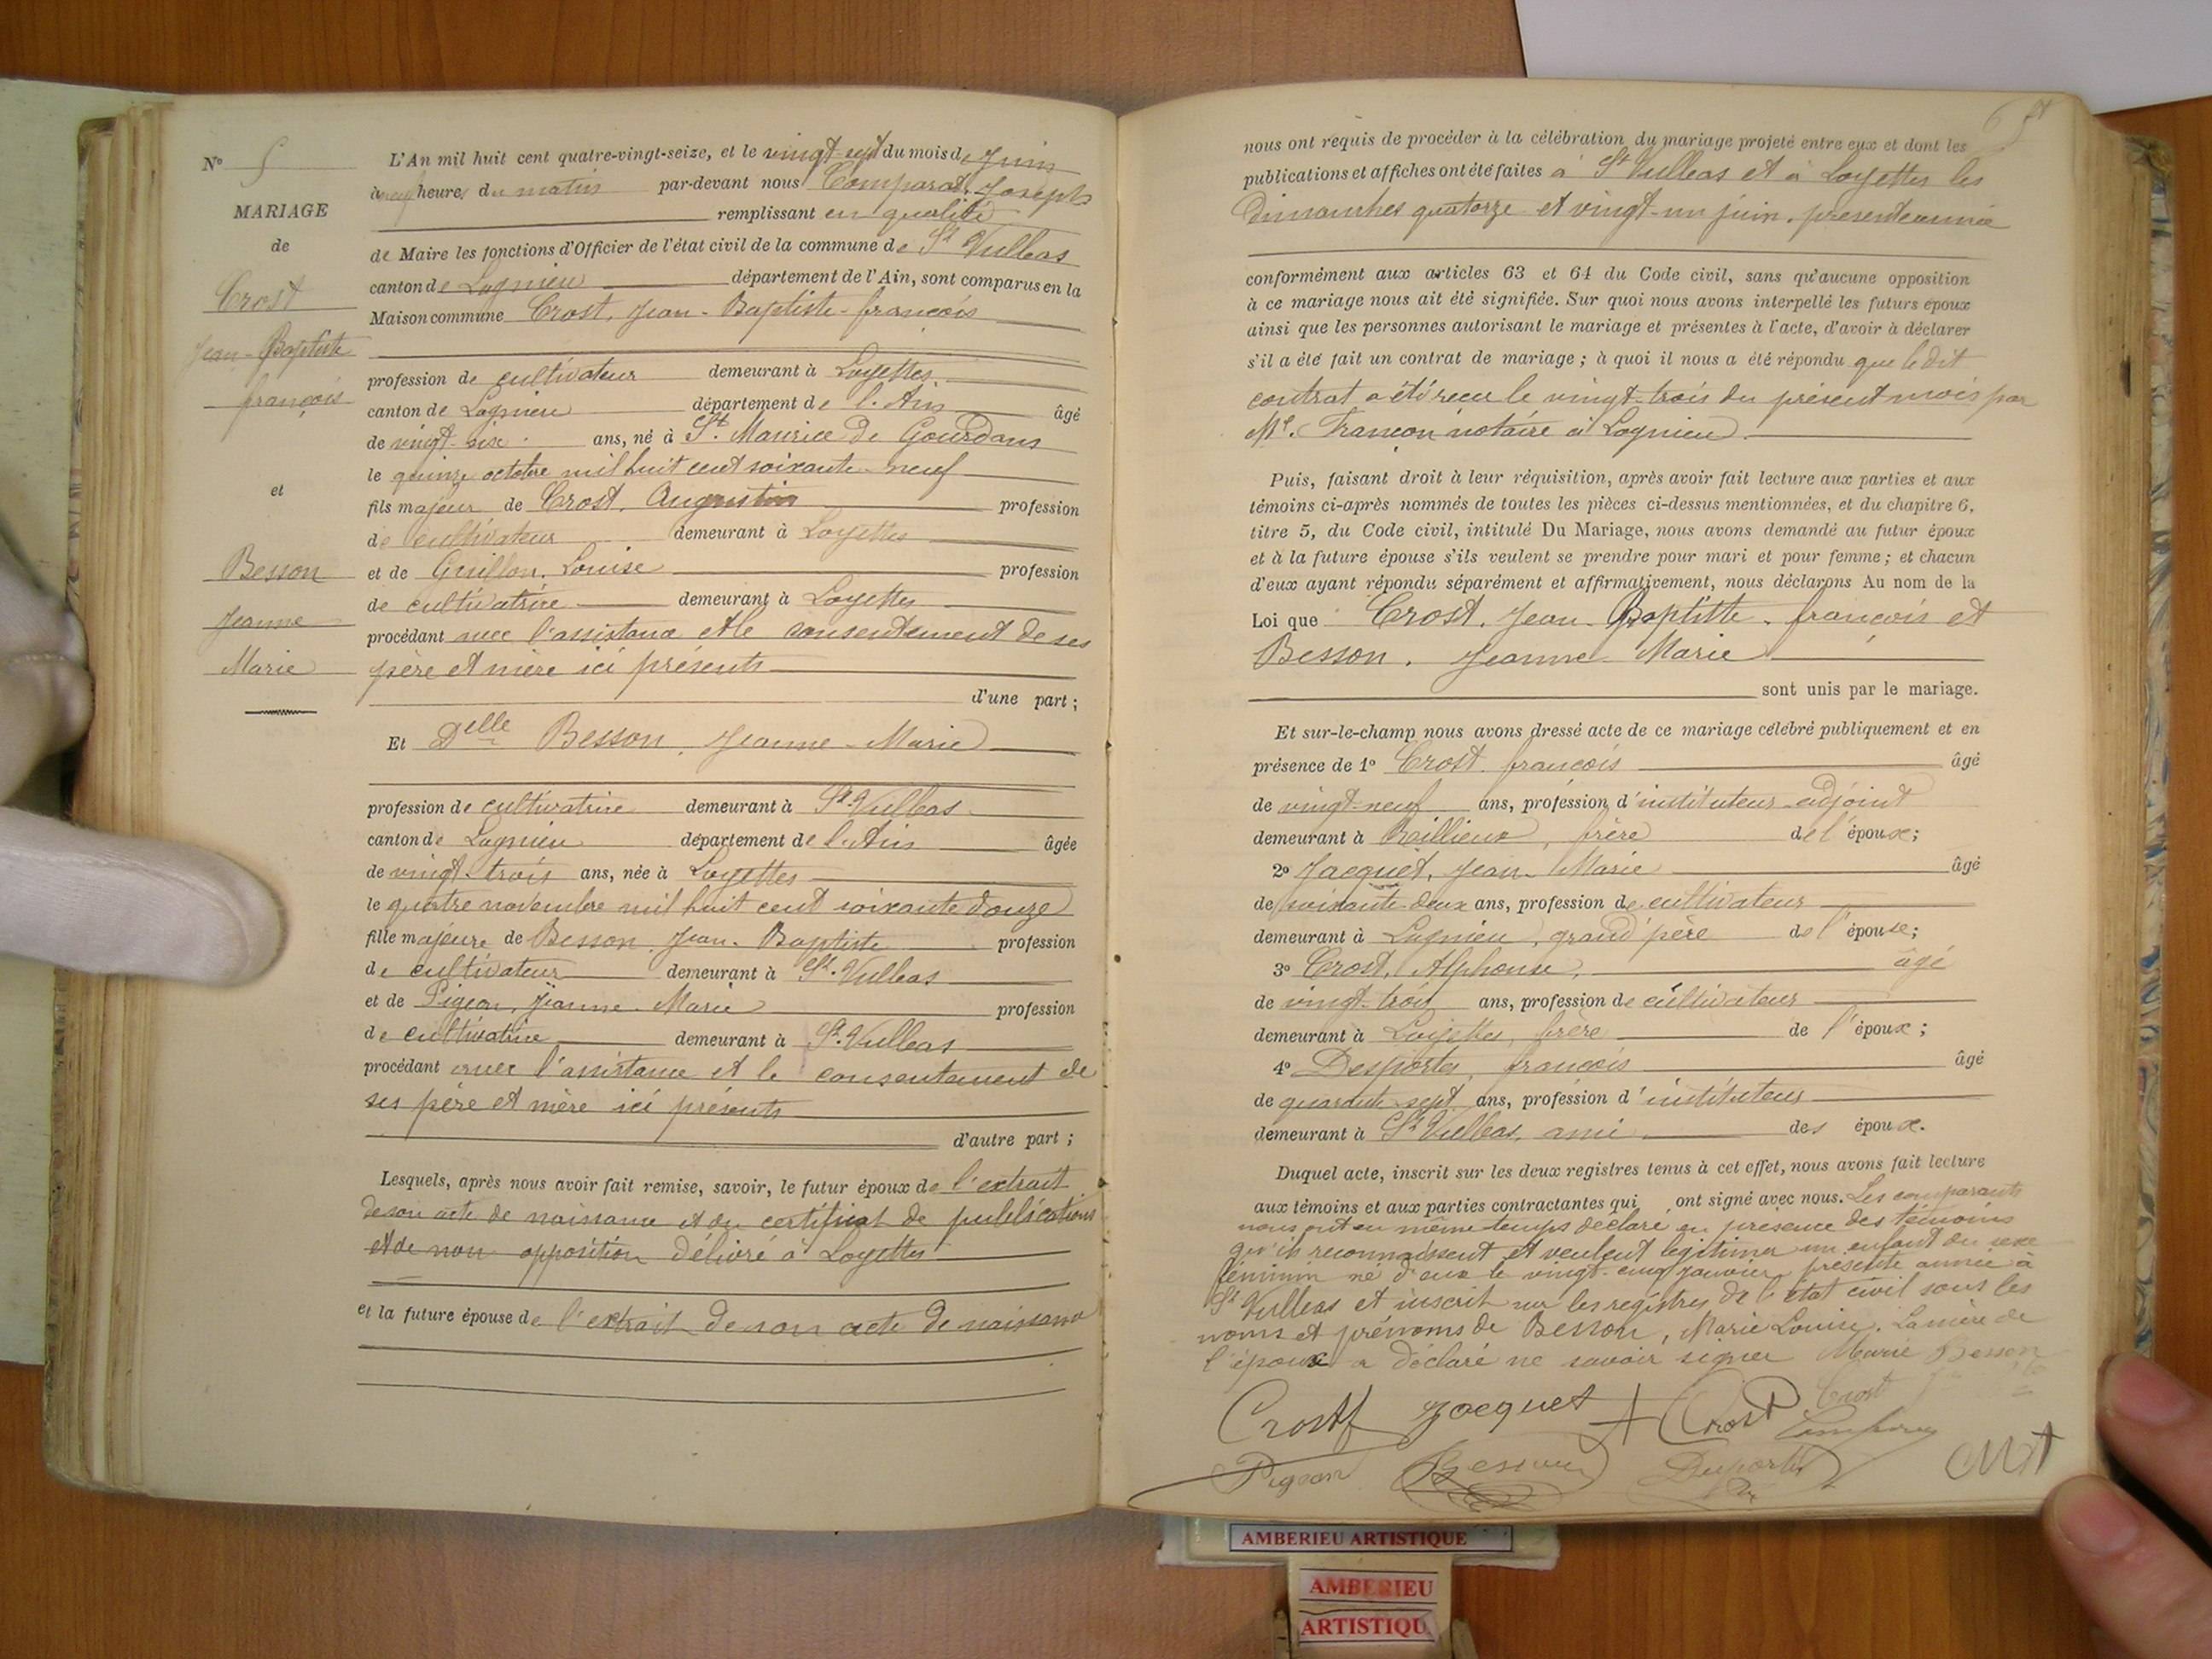 N° 5
MARIAGE
de
Crost
Jean-Baptiste
françois
et
Besson
Jeanne
Marie
L'An mil huit cent quatre-vingt-seize, et le vingt-sept du mois de Juin
à neuf heures du matin par-devant nous Comparat, Joseph
remplissant en qualité
de Maire les fonctions d'Officier de l'état civil de la commune de St Vulbas
canton de Lagnieu département de l'Ain, sont comparus en la
Maison commune Crost, Jean-Baptiste-françois
profession de cultivateur demeurant à Loyettes
canton de Lagnieu département de l'Ain âgé
de vingt-six ans, né à St. Maurice de Gourdans
le quinze octobre mil huit cent soixante-neuf
fils majeur de Crost, Augustin profession
de cultivateur demeurant à Loyettes
et de Guillon, Louise profession
de cultivatrice demeurant à Loyettes
procédant avec l'assistance et le consentement de ses
père et mère ici présents
d'une part ;
Et Delle Besson, Jeanne-Marie
profession de cultivatrice demeurant à St. Vulbas
canton de Lagnieu département de l'Ain âgée
de vingt-trois ans, née à Loyettes
le quatre novembre mil huit cent soixante douze
fille majeure de Besson Jean-Baptiste profession
de cultivateur demeurant à St. Vulbas
et de Pigeon, Jeanne-Marie profession
de cultivatrice demeurant à St. Vulbas
procédant avec l'assistance et le consentement de
ses père et mère ici présents
d'autre part ;
Lesquels, après nous avoir fait remise, savoir, le futur époux de l'extrait
de son acte de naissance et du certificat de publications
et de non opposition délivré à Loyettes
et la future épouse de l'extrait de son acte de naissance
nous ont requis de procéder à la célébration du mariage projeté entre eux et dont les
publications et affiches ont été faites à St Vulbas et à Loyettes les
dimanches quatorze et vingt-un juin, présente année
conformément aux articles 63 et 64 du Code civil, sans qu'aucune opposition
à ce mariage nous ait été signifiée. Sur quoi nous avons interpellé les futurs époux
ainsi que les personnes autorisant le mariage et présentes à l'acte, d'avoir à déclarer
s'il a été fait un contrat de mariage ; à quoi il nous a été répondu que le dit
contrat a été reçu le vingt-trois du présent mois par
Me. Françon notaire à Lagnieu.
Puis, faisant droit à leur réquisition, après avoir fait lecture aux parties et aux
témoins ci-après nommés de toutes les pièces ci-dessus mentionnées, et du chapitre 6,
titre 5, du Code civil, intitulé Du Mariage, nous avons demandé au futur époux
et à la future épouse s'ils veulent se prendre pour mari et pour femme ; et chacun
d'eux ayant répondu séparément et affirmativement, nous déclarons Au nom de la
Loi que Crost, Jean-Baptiste-françois et
Besson, Jeanne-Marie
sont unis par le mariage.
Et sur-le-champ nous avons dressé acte de ce mariage célébré publiquement et en
présence de 1° Crost françois âgé
de vingt-neuf ans, profession d'instituteur-adjoint
demeurant à Reillieux, frère de l'époux ;
2° Jacquet, Jean-Marie âgé
de soixante-deux ans, profession de cultivateur
demeurant à Lagnieu, grand'père de l'épouse ;
3° Crost, Alphonse, âgé
de vingt-trois ans, profession de cultivateur
demeurant à Loyettes, frère de l'époux ;
4° Desportes, françois âgé
de quarante-sept ans, profession d'instituteur
demeurant à St Vulbas, ami des époux.
Duquel acte, inscrit sur les deux registres tenus à cet effet, nous avons fait lecture
aux témoins et aux parties contractantes qui ont signé avec nous. Les comparants
nous ont en même temps déclaré en présence des témoins
qu'ils reconnaissent et veulent légitimer un enfant du sexe
féminin né d'eux le vingt-cinq janvier présente année à
St Vulbas et inscrit sur les registres de l'état civil sous les
noms et prénoms de Besson, Marie Louise. La mère de
l'époux a déclaré ne savoir signer Marie Besson
Crost
Crost f Jacquet A Crost
Pigeon Besson
AMBERIEU ARTISTIQUE
AMBERIEU
ARTISTIQU